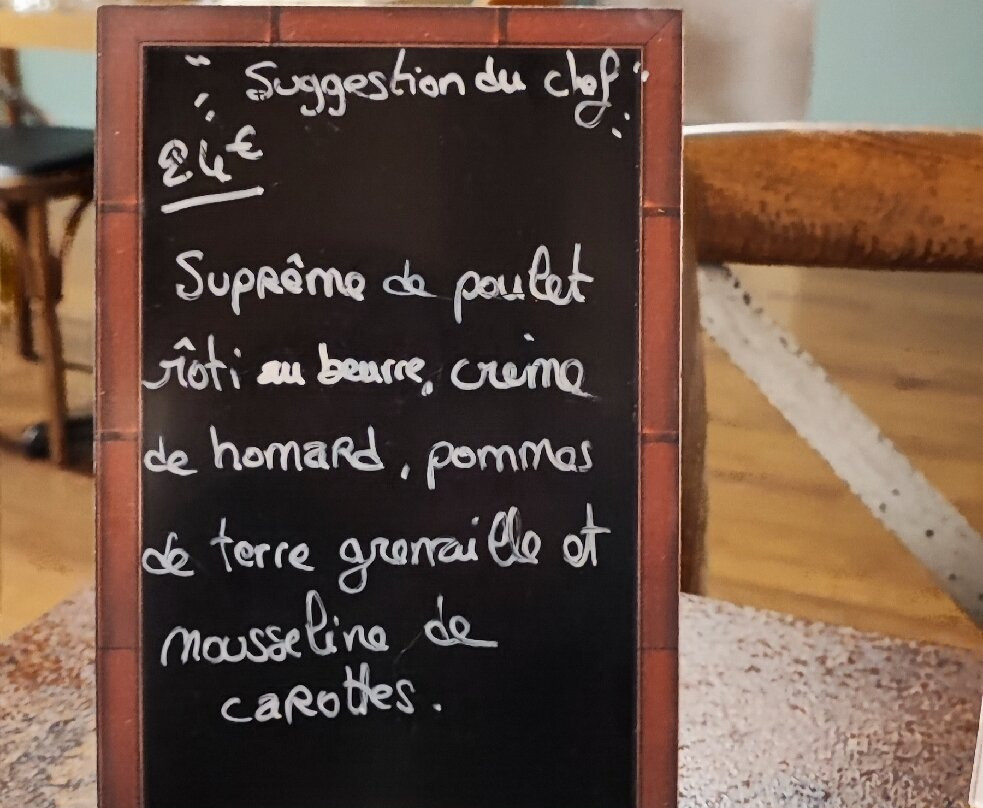 Suggestion du chef
24€
Suprême de poulet
rôti au beurre, crème
de homard, pommes
de terre grenaille et
mousseline de
carottes.